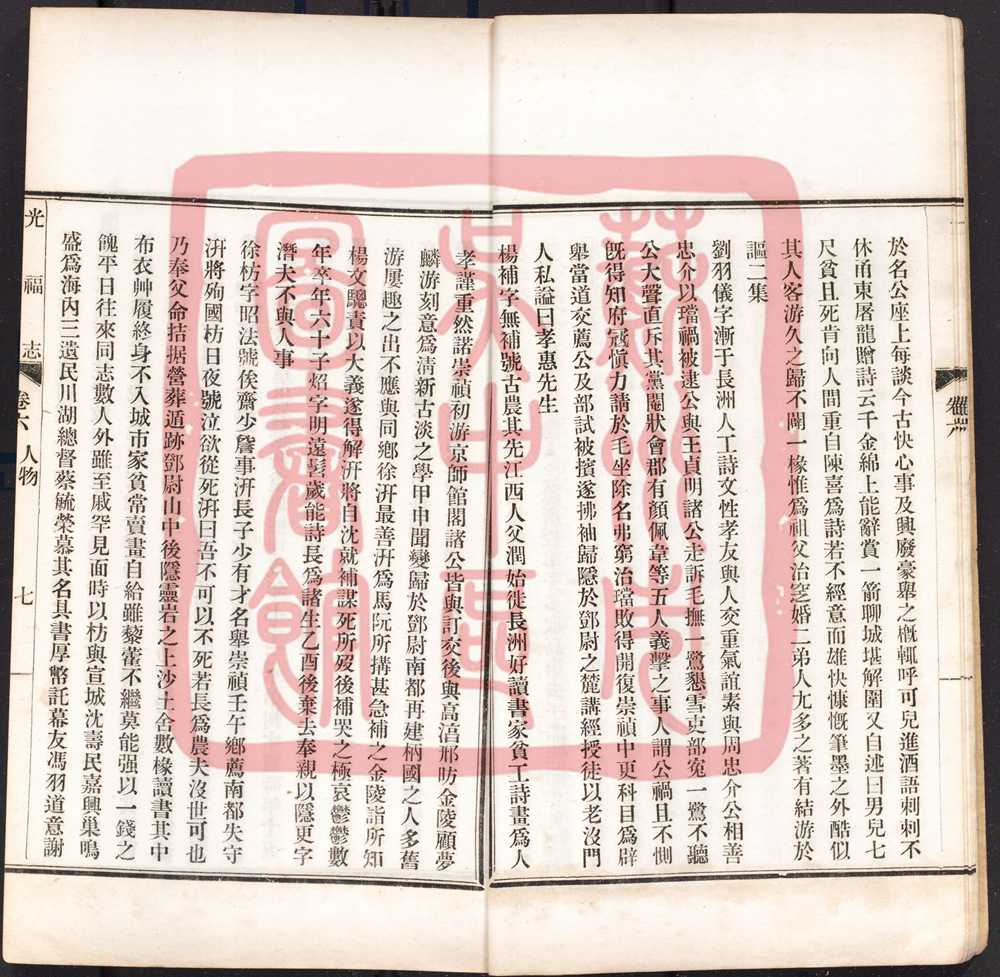 於名公座上每談今古快心事及興廢豪舉之槪輒呼可兒進酒語刺刺不
休甬東屠龍贈詩云千金綿上能辭賞一箭聊城堪解圍又自述曰男兒七
尺貧且死肯向人間重自陳喜爲詩若不經意而雄快慷慨筆墨之外酷似
其人客游久之歸不闢一椽惟爲祖父治窆婚二弟人尤多之著有結游於
謳二集
劉羽儀字漸于長洲人工詩文性孝友與人交重氣誼素與周忠介公相善
忠介以璫禍被逮公與王貞明諸公走訴毛撫一鷺懇雪吏部寃一鷺不聽
公大聲直斥其黨閹狀會郡有顏佩韋等五人義擊之事人謂公禍且不惻
旣得知府寇愼力請於毛坐除名弗窮治璫敗得開復崇禎中更科目爲辟
舉當道交薦公及部試被擯遂拂袖歸隱於鄧尉之麓講經授徒以老沒門
人私謚曰孝惠先生
楊補字無補號古農其先江西人父潤始徙長洲好讀書家貧工詩畫爲人
孝謹重然諾崇禎初游京師館閣諸公皆與訂交後與高淯邢昉金陵顧夢
麟游刻意爲淸新古淡之學甲申聞變歸於鄧尉南都再建柄國之人多舊
游屢趣之出不應與同鄕徐汧最善汧爲馬阮所搆甚急補之金陵詣所知
楊文驄責以大義遂得解汧將自沈就補謀死所歿後補哭之極哀鬱鬱數
年卒年六十子炤字明遠髫歲能詩長爲諸生乙酉後棄去奉親以隱更字
潛夫不與人事
徐枋字昭法號俟齋少詹事汧長子少有才名舉崇禎壬午鄕薦南都失守
汧將殉國枋日夜號泣欲從死汧曰吾不可以不死若長爲農夫沒世可也
乃奉父命拮据營葬遁跡鄧尉山中後隱靈岩之上沙土舍數椽讀書其中
布衣艸履終身不入城市家貧常賣畫自給雖藜藿不繼莫能强以一錢之
餽平日往來同志數人外雖至戚罕見面時以枋與宣城沈壽民嘉興巢鳴
盛爲海內三遺民川湖總督蔡毓榮慕其名具書厚幣託幕友馮羽道意謝
光福志
卷六 人物
七
蘇州市
吳中區
圖書館